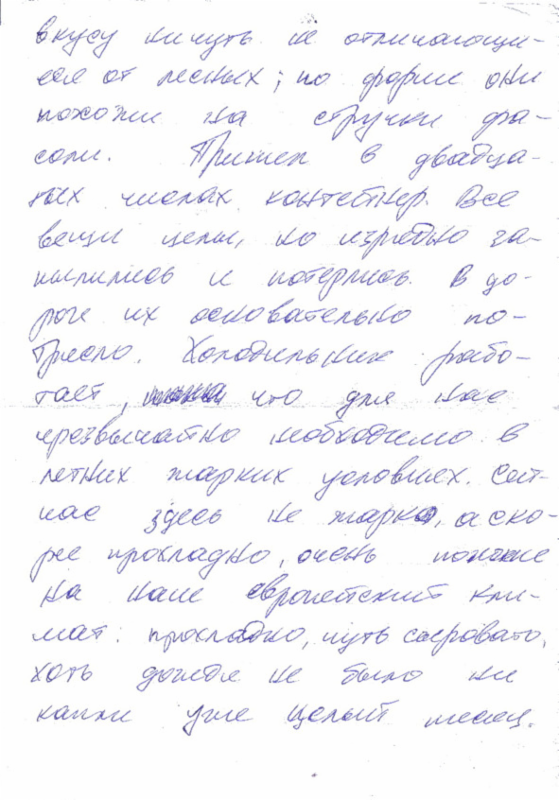 вкусу ничуть не отличающи-
еся от лесных; по форме они
похожи на стручки фа-
соли. Пришел в двадца-
тых числах контейнер. Все
вещи целы, но изрядно за-
пылились и потерлись. В до-
роге их основательно по-
трясло. Холодильник рабо-
тает, что для нас
чрезвычайно необходимо в
летних жарких условиях. Сей-
час здесь не жарко, а ско-
рее прохладно, очень похоже
на наш европейский кли-
мат: прохладно, чуть сыровато,
хоть дождя не было ни
капли уже целый месяц.